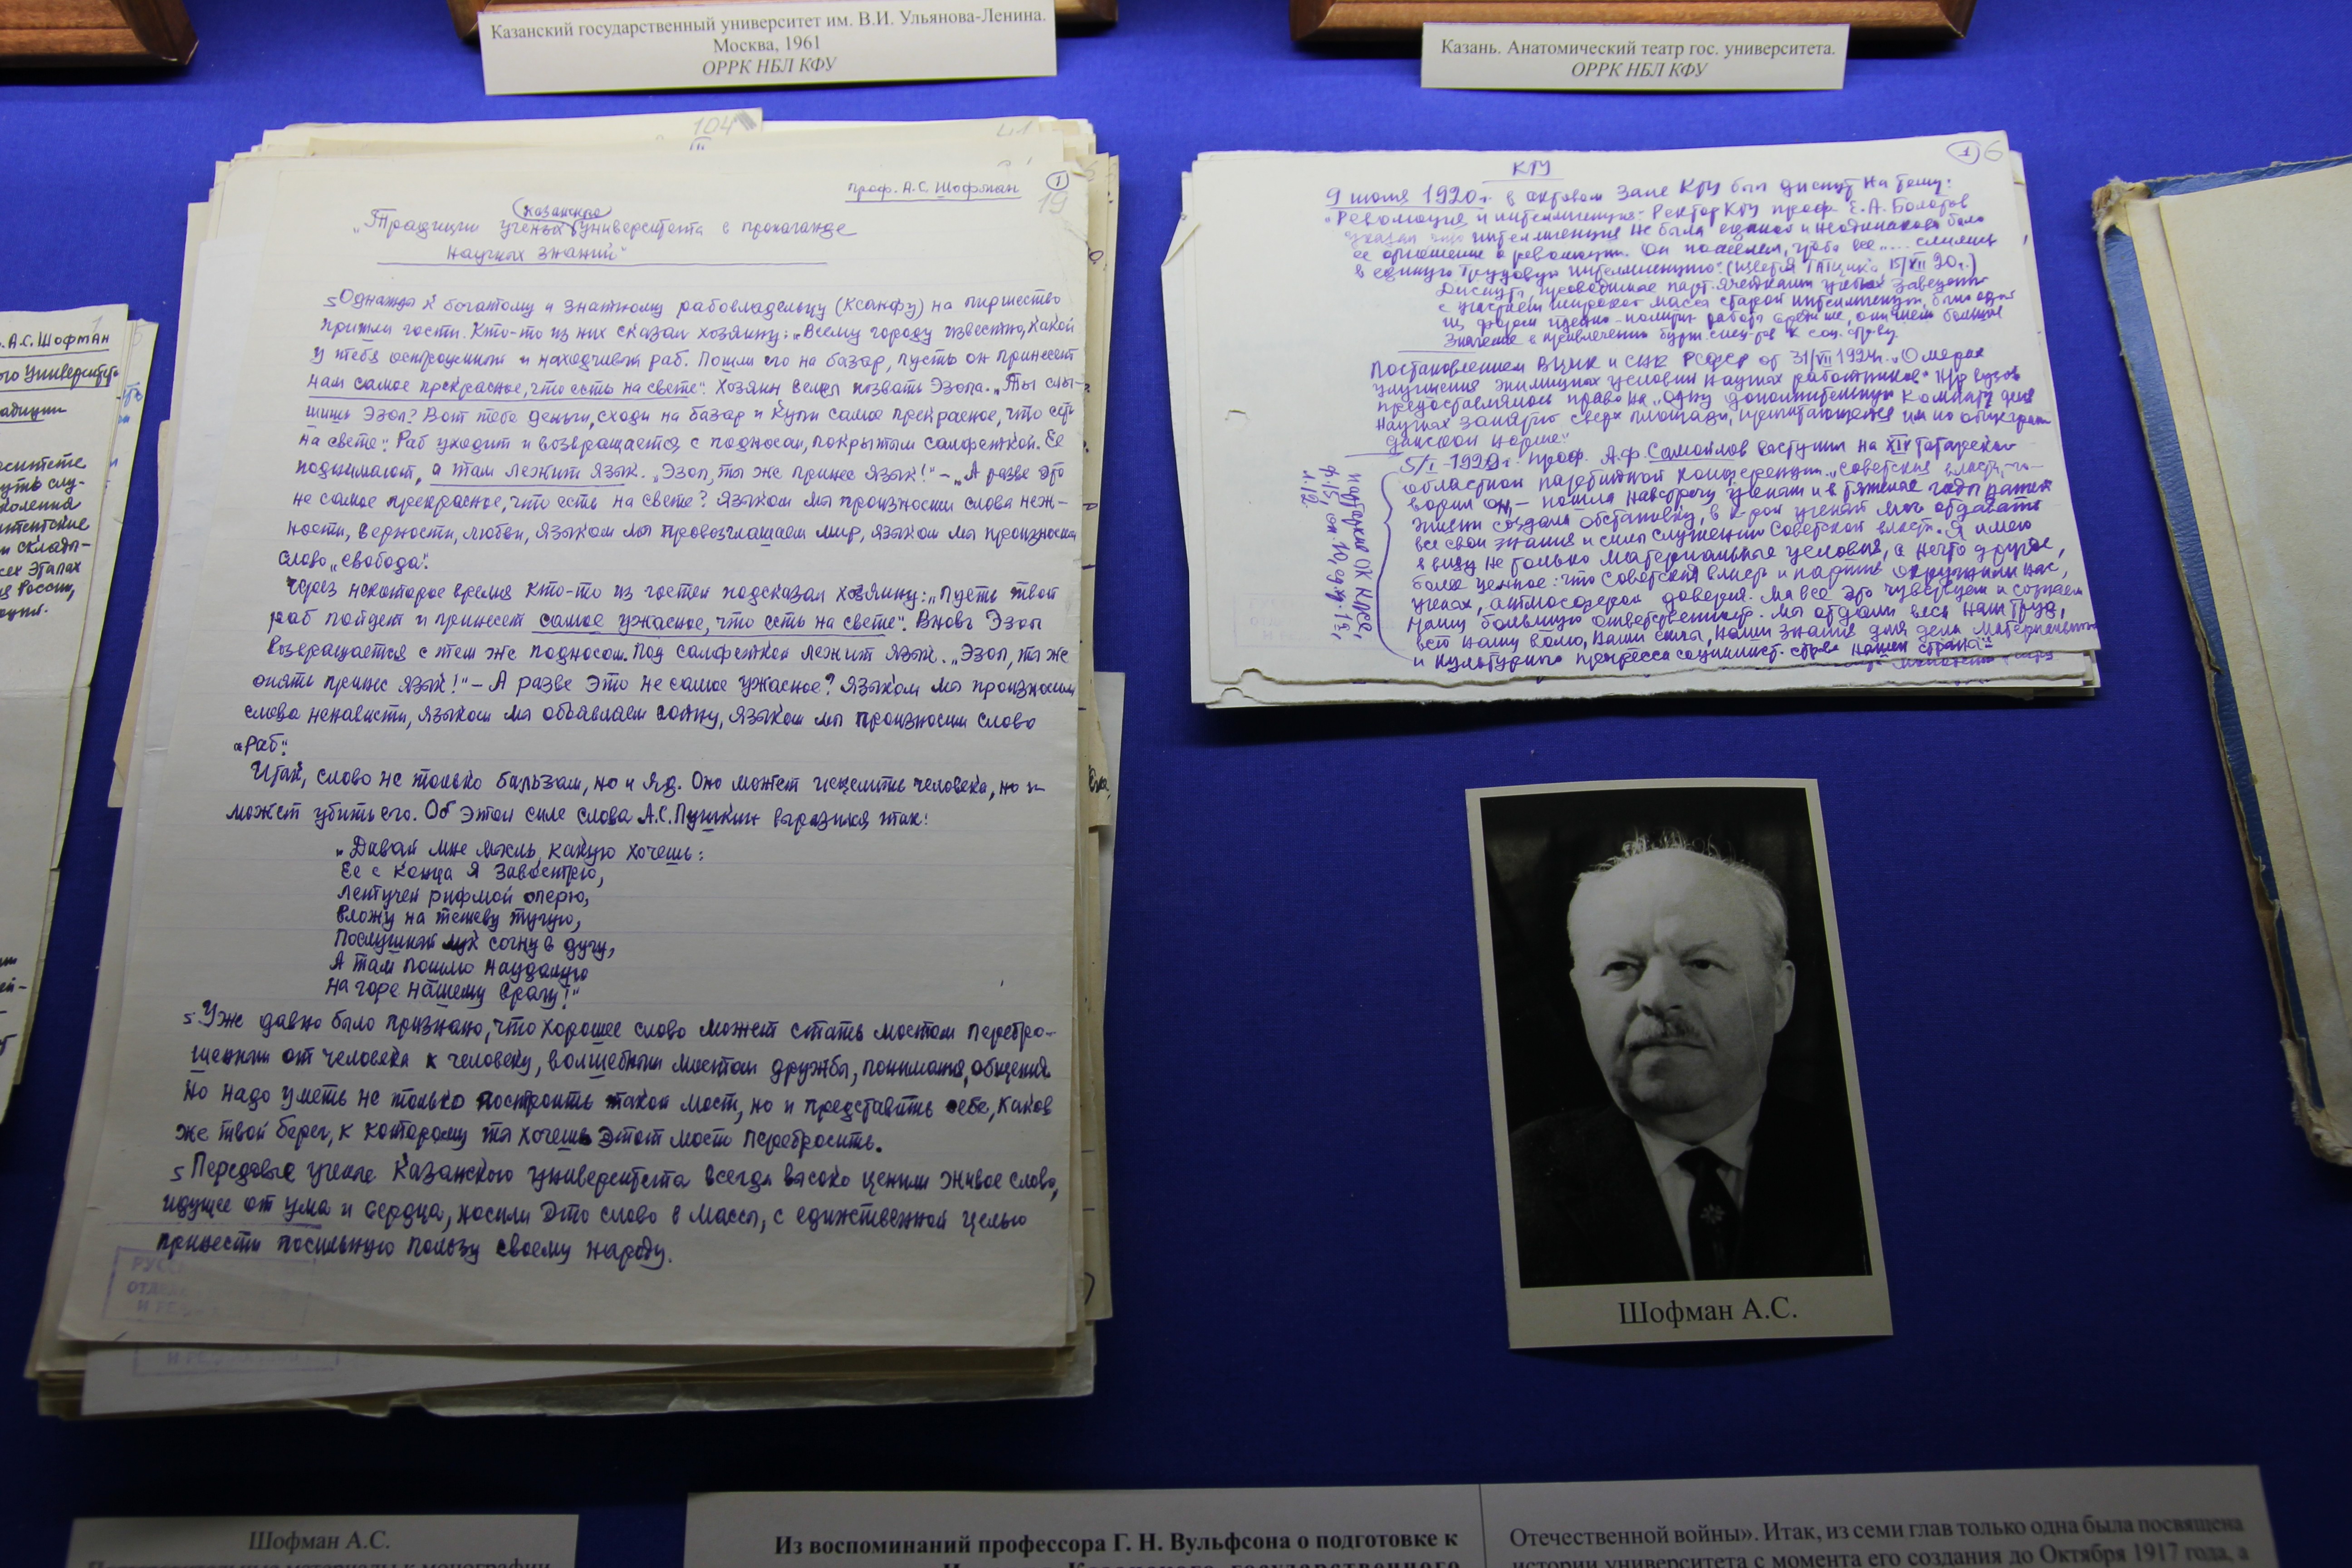 Казанский государственный университет им. В.И. Ульянова-Ленина.
Москва, 1961
ОРРК НБЛ КФУ
Казань. Анатомический театр гос. университета.
ОРРК НБЛ КФУ
А.С. Шофман
104
III
проф. А.С. Шофман
1
19
казанского
"Традиции ученых университета в пропаганде
научных знаний"
Однажды к богатому и знатному рабовладельцу (Ксанфу) на пиршество
пришли гости. Кто-то из них сказал хозяину: "Всему городу известно, какой
у тебя остроумный и находчивый раб. Пошли его на базар, пусть он принесет
нам самое прекрасное, что есть на свете". Хозяин велел позвать Эзопа. "Ты слы-
шишь Эзоп? Вот тебе деньги, сходи на базар и купи самое прекрасное, что есть
на свете". Раб уходит и возвращается с подносом, покрытым салфеткой. Ее
поднимают, а там лежит язык. "Эзоп, ты же принес язык!" – "А разве это
не самое прекрасное, что есть на свете? Языком мы произносим слова неж-
ности, верности, любви, языком мы провозглашаем мир, языком мы произносим
слово "свобода".
Через некоторое время кто-то из гостей подсказал хозяину: "Пусть твой
раб пойдет и принесет самое ужасное, что есть на свете". Вновь Эзоп
возвращается с тем же подносом. Под салфеткой лежит язык. "Эзоп, ты же
опять принес язык!" – А разве это не самое ужасное? Языком мы произносим
слова ненависти, языком мы объявляем войну, языком мы произносим слово
"раб".
Итак, слово не только бальзам, но и яд. Оно может исцелить человека, но и
может убить его. Об этой силе слова А.С. Пушкин выразился так:
"Давай мне мысль, какую хочешь:
Ее с конца я завострю,
Летучей рифмой оперю,
Вложу на тетиву тугую,
Послушный лук согну в дугу,
А там пошлю наудалую
На горе нашему врагу!"
Уже давно было признано, что хорошее слово может стать мостом перебро-
шенным от человека к человеку, волшебным мостом дружбы, понимания, общения.
Но надо уметь не только построить такой мост, но и представить себе, каков
же твой берег, к которому ты хочешь этот мост перебросить.
Передовые ученые Казанского университета всегда высоко ценили живое слово,
идущее от ума и сердца, носили это слово в массы, с единственной целью
принести посильную пользу своему народу.
КГУ
1
6
9 июля 1920 г. в актовом зале КГУ был диспут на тему:
"Революция и интеллигенция". Ректор КГУ проф. Е.А. Болотов
указал что интеллигенция не была единой и неодинаково было
ее отношение к революции. Он пожелал, чтобы все ..... слились
в единую трудовую интеллигенцию".
Диспуты, проводимые парт. ячейками учебных заведений
с участием широкой массы старой интеллигенции, были одной
из форм идейно-политич. работы среди нее, они имели большое
значение в привлечении бурж. спец-ов к соц. стр-ву.
Постановлением ВЦИК и СНК РСФСР от 31/VII 1924 г. "О мерах
улучшения жилищных условий научных работников" н/р вузов
предоставлялось право на "одну дополнительную комнату для
научных занятий сверх площади, причитающейся им по общеграж-
данской норме".
5/I-1929 г. проф. А.Ф. Самойлов выступил на XIV татарской
областной партийной конференции. "Советская власть, – го-
ворил он, – пошла навстречу ученым и в тяжелые годы нашей
жизни создала обстановку, в к-рой ученый мог отдавать
все свои знания и силы служению Советской власти. Я имею
в виду не только материальные условия, а нечто другое,
более ценное: что Советская власть и партия окружили нас,
ученых, атмосферой доверия. Мы все это чувствуем и сознаем
нашу большую ответственность. Мы отдали весь наш труд,
всю нашу волю, наши силы, наши знания для дела материального
и культурного прогресса социалист. стр-ва нашей страны"
Шофман А.С.
Шофман А.С.
Из воспоминаний профессора Г. Н. Вульфсона о подготовке к
Отечественной войны». Итак, из семи глав только одна была посвящена
истории университета с момента его создания до Октября 1917 года, а